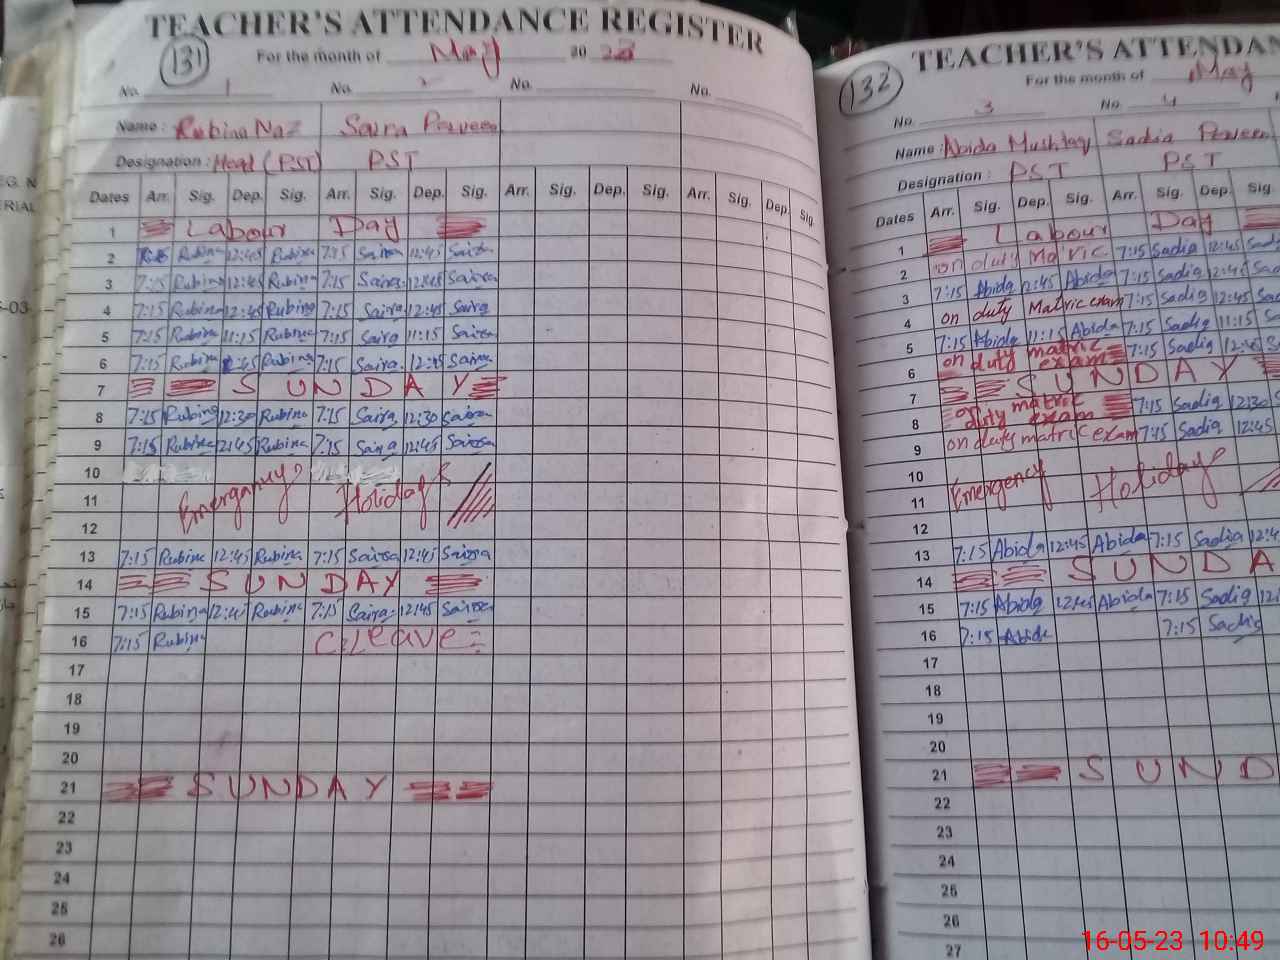 TEACHER'S ATTENDANCE REGISTER
131
For the month of May 2023
No. 1 No. 2 No. No.
Name: Rubina Naz Saira Parveen
Designation: Head (PST) PST
Dates Arr. Sig. Dep. Sig. Arr. Sig. Dep. Sig. Arr. Sig. Dep. Sig. Arr. Sig. Dep. Sig.
1 Labour Day
2 Rubina 12:45 Rubina 7:15 Saira 12:45 Saira
3 7:15 Rubina 12:45 Rubina 7:15 Saira 12:45 Saira
4 7:15 Rubina 12:45 Rubina 7:15 Saira 12:45 Saira
5 7:15 Rubina 11:15 Rubina 7:15 Saira 11:15 Saira
6 7:15 Rubina 12:45 Rubina 7:15 Saira 12:45 Saira
7 SUNDAY
8 7:15 Rubina 12:30 Rubina 7:15 Saira 12:30 Saira
9 7:15 Rubina 12:45 Rubina 7:15 Saira 12:45 Saira
10
11 Emergancy Holidays
12
13 7:15 Rubina 12:45 Rubina 7:15 Saira 12:45 Saira
14 SUNDAY
15 7:15 Rubina 12:45 Rubina 7:15 Saira 12:45 Saira
16 7:15 Rubina C.Leave
17
18
19
20
21 SUNDAY
22
23
24
25
26
TEACHER'S ATTENDAN
132
For the month of May
No. 3 No. 4
Name: Abida Mushtaq Sadia Parveen
Designation: PST PST
Dates Arr. Sig. Dep. Sig. Arr. Sig. Dep. Sig.
1 Labour Day
2 on duty Matric 7:15 Sadia 12:45 Sadi
3 7:15 Abida 12:45 Abida 7:15 Sadia 12:45 Sad
4 on duty Matric exam 7:15 Sadia 12:45 Sa
5 7:15 Abida 11:15 Abida 7:15 Sadia 11:15 Sa
6 on duty matric exam 7:15 Sadia 12:45 S
7 SUNDAY
8 on duty matric exam 7:15 Sadia 12:30 S
9 on duty matric exam 7:15 Sadia 12:45
10
11 Emergency Holidays
12
13 7:15 Abida 12:45 Abida 7:15 Sadia 12:4
14 SUNDA
15 7:15 Abida 12:45 Abida 7:15 Sadia 12:
16 7:15 Abida 7:15 Sadia
17
18
19
20
21 SUND
22
23
24
25
26
27
16-05-23 10:49